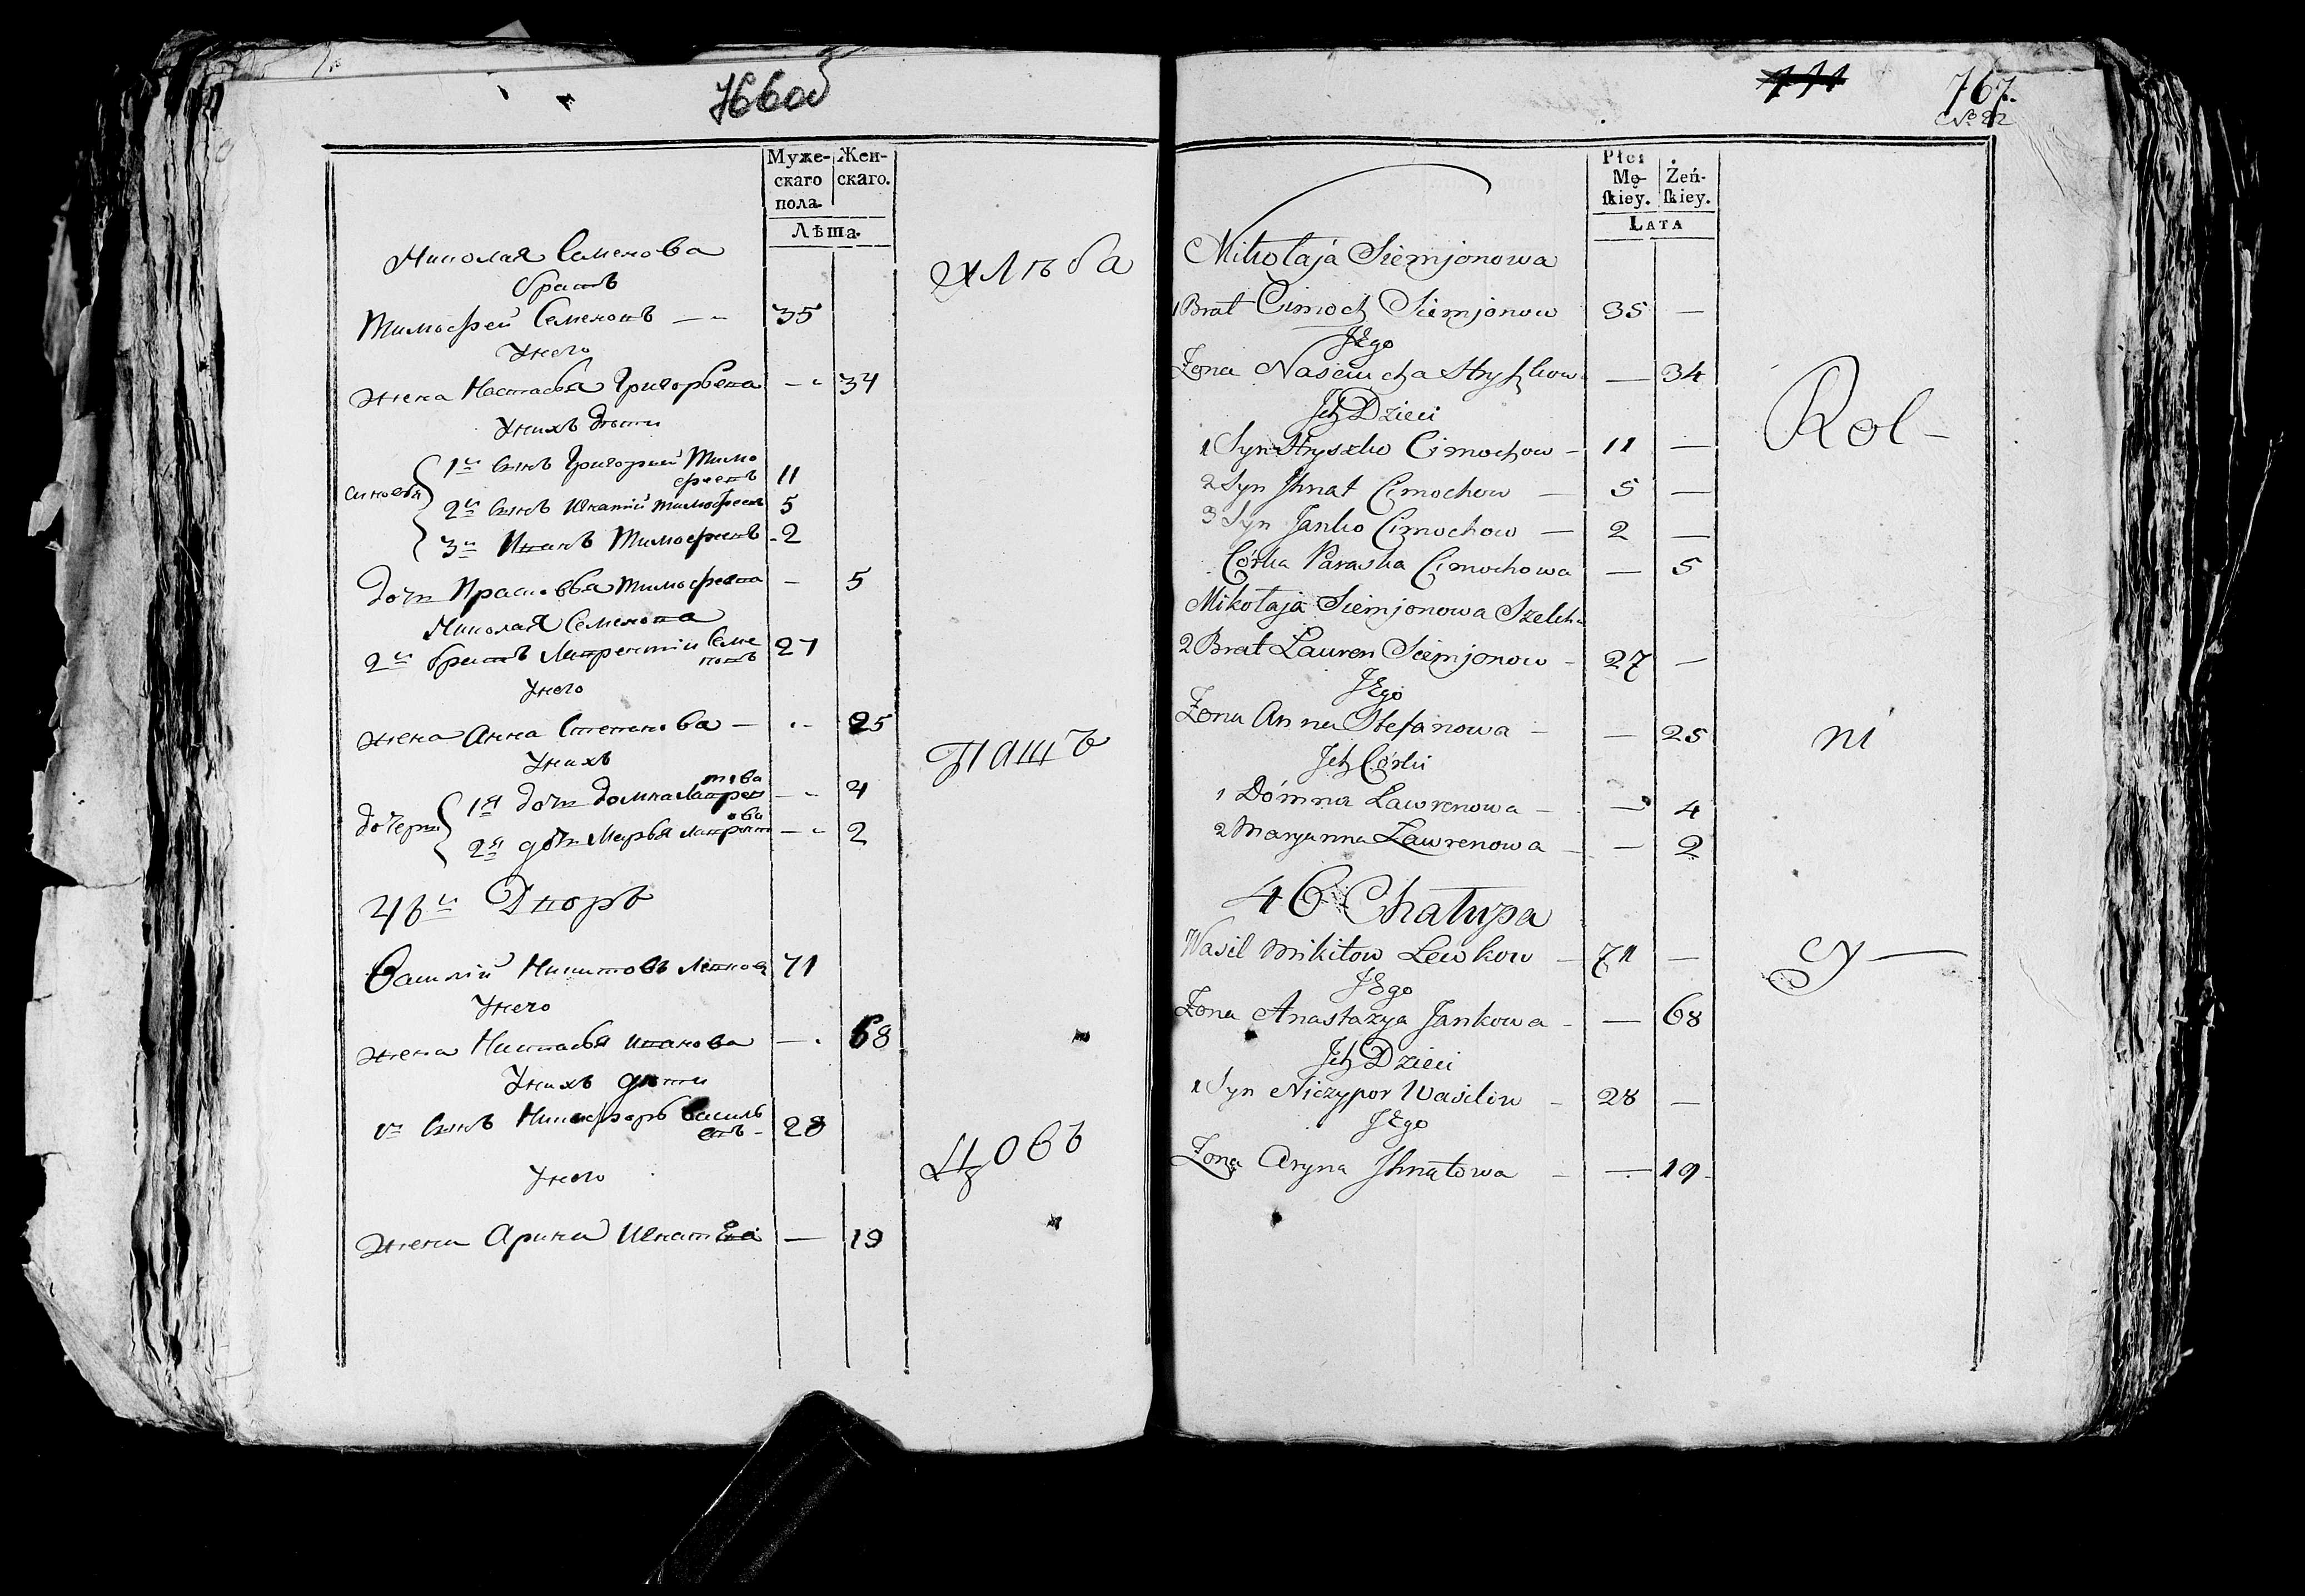 766об
Муже- Жен-
скаго скаго.
пола.
Лѣта.
Николая Семенова
братъ
Тимофей Семеновъ — 35
У него
жена Настасья Григорьева — 34
У нихъ дѣти
синовья 1й сынъ Григорий Тимо
феевъ 11
2й сынъ Игнатий Тимофеевъ 5
3й Иванъ Тимофеевъ - 2
дочь Прасковья Тимофеева — 5
Николая Семенова
2й братъ Лаврентий Семе
новъ 27
У него
жена Анна Степанова — 25
У нихъ
дочери 1я дочь Домна Лаврен
това — 4
2я дочь Марья Лаврент
ова — 2
46й Дворъ
Василий Никитовъ Левковъ 71
У него
жена Настасья Иванова — 68
У нихъ дѣти
1й сынъ Никифоръ Василь
евъ - 28
У него
жена Арина Игнатева — 19
хлѣба
пашъ
цовъ
771 767.
№ 22
Płci
Mę- Żeń-
ſkiey. ſkiey.
LATA
Mikołaja Siemjonowa
1 Brat Cimoch Siemjonow 35 —
JEgo
Żona Nasciucha Hryszkow — 34
Jch Dzieci
1 Syn Hryszko Cimochow - 11 —
2 Syn Jhnat Cimochow — 5 —
3 Syn Janko Cimochow — 2 —
Córka Paraska Cimochowa — 5
Mikołaja Siemjonowa
2 Brat Lauren Siemjonow - 27 —
JEgo
Żona Anna Stefanowa — — 25
Jch Córki
1 Dómna Lawrenowa — — 4
2 Maryanna Lawrenowa — — 2
46 Chałupa
Wasil Mikitow Lewkow — 71 —
JEgo
Żona Anastazya Jankowa - — 68
Jch Dzieci
1 Syn Niczypor Wasilow - 28 —
JEgo
Żona Aryna Jhnatowa — — 19
Rol-
ni
cy —